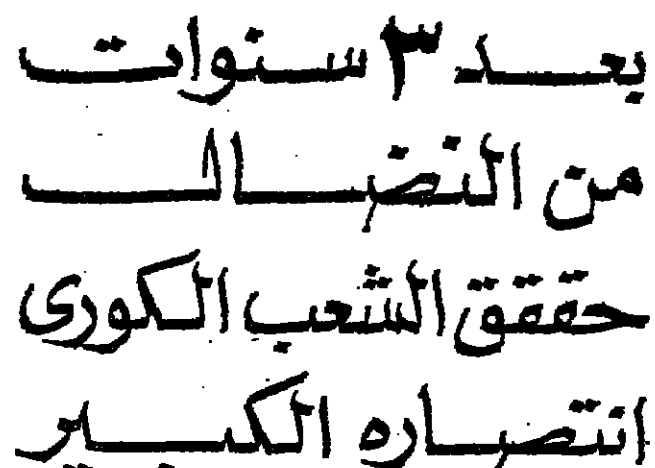 بعد ٣ سنوات
من النضال
حققق الشعب الكورى
انتصاره الكبير